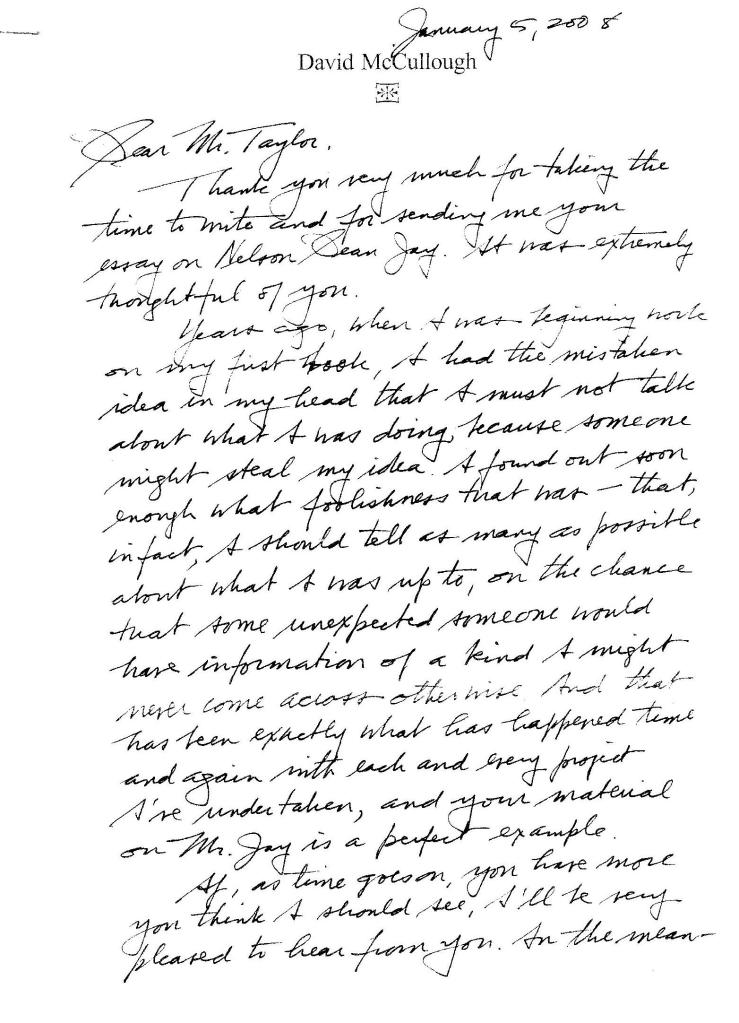 January 5, 2008
David McCullough
Dear Mr. Taylor,
Thank you very much for taking the
time to write and for sending me your
essay on Nelson Dean Jay. It was extremely
thoughtful of you.
Years ago, when I was beginning work
on my first book, I had the mistaken
idea in my head that I must not talk
about what I was doing, because someone
might steal my idea. I found out soon
enough what foolishness that was — that,
in fact, I should tell as many as possible
about what I was up to, on the chance
that some unexpected someone would
have information of a kind I might
never come across otherwise. And that
has been exactly what has happened time
and again with each and every project
I've undertaken, and your material
on Mr. Jay is a perfect example.
If, as time goes on, you have more
you think I should see, I'll be very
pleased to hear from you. In the mean-